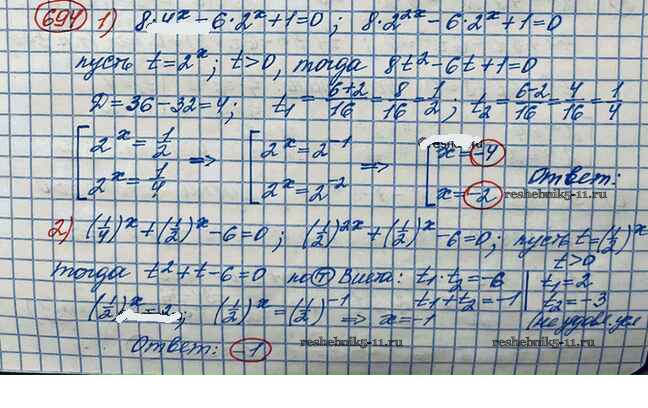 694 1) 8·4ˣ - 6·2ˣ + 1 = 0 ; 8·2²ˣ - 6·2ˣ + 1 = 0
пусть t = 2ˣ ; t > 0, тогда 8t² - 6t + 1 = 0
D = 36 - 32 = 4 ; t₁ = (6+2)/16 = 8/16 = 1/2 ; t₂ = (6-2)/16 = 4/16 = 1/4
[ 2ˣ = 1/2 => [ 2ˣ = 2⁻¹ => [ x = -4
2ˣ = 1/4 2ˣ = 2⁻² x = -2 Ответ:
reshebnik5-11.ru
2) (1/4)ˣ + (1/2)ˣ - 6 = 0 ; (1/2)²ˣ + (1/2)ˣ - 6 = 0 ; пусть t = (1/2)ˣ
t > 0
тогда t² + t - 6 = 0 по Т Виета: t₁·t₂ = -6 | t₁ = 2
t₁ + t₂ = -1 | t₂ = -3
(1/2)ˣ = 2 ; (1/2)ˣ = (1/2)⁻¹ => x = -1 (не удов. усл
Ответ: -1 reshebnik5-11.ru reshebnik5-11.ru